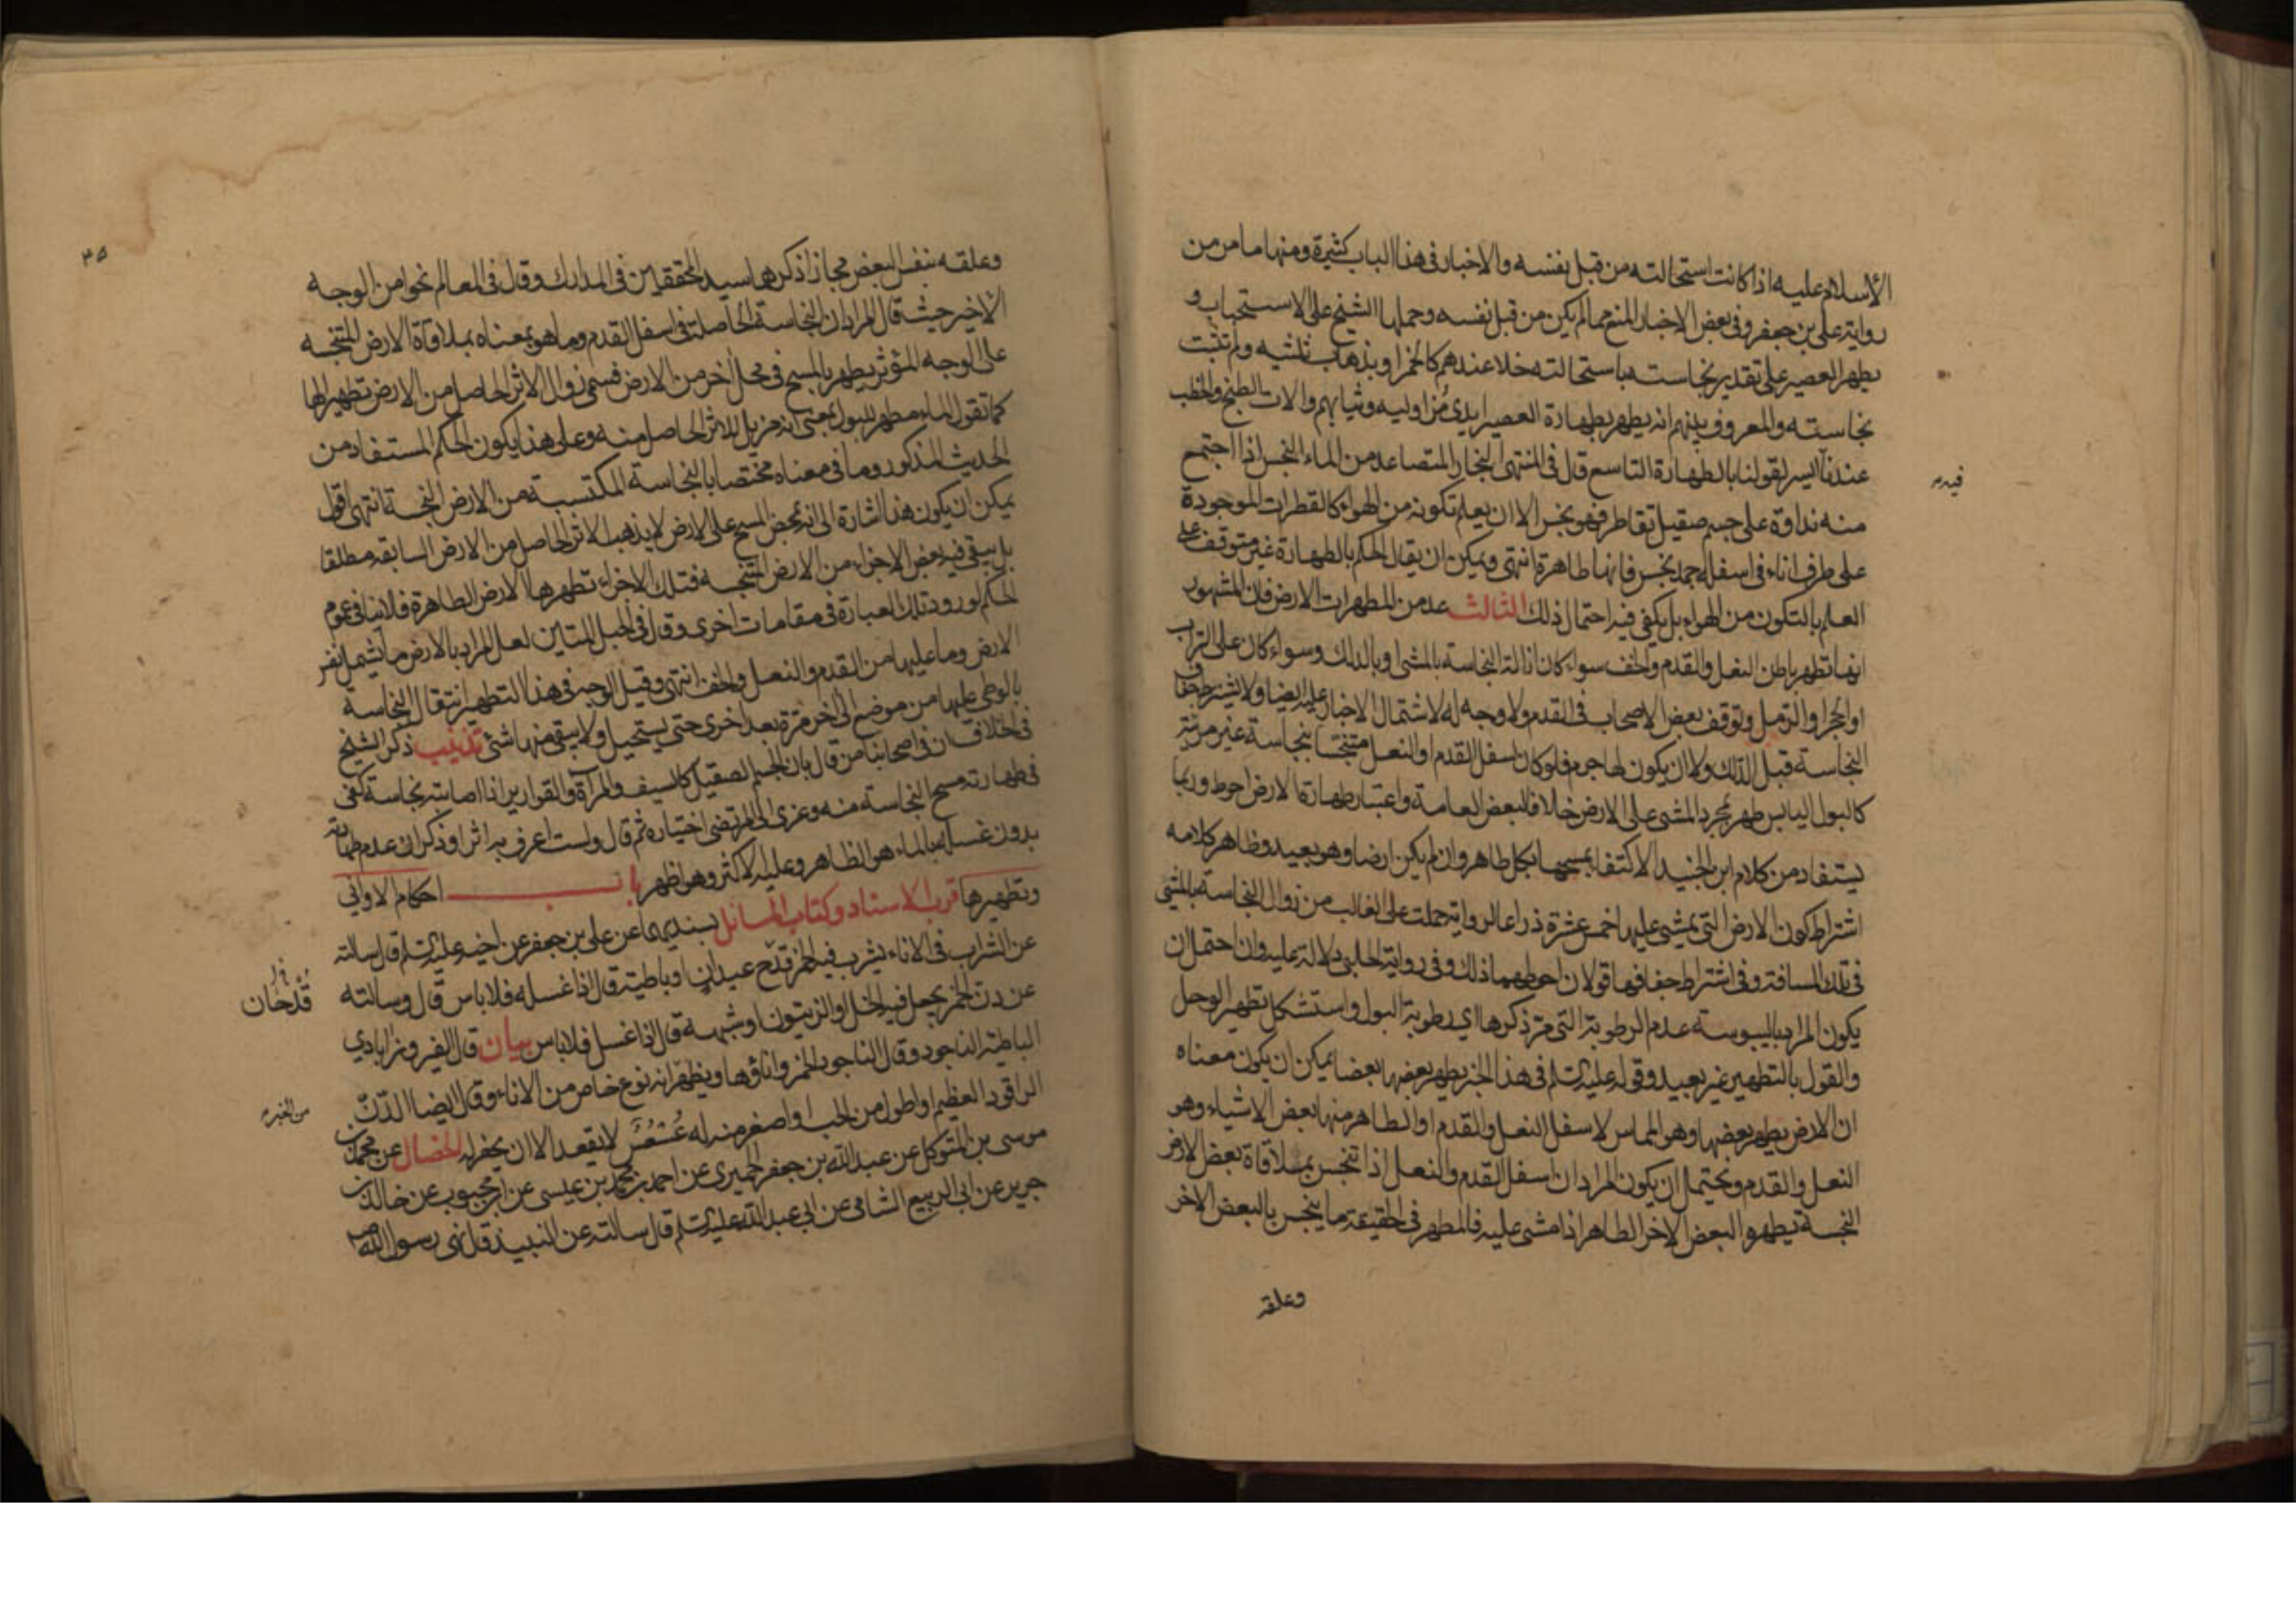 الاسلام عليه اذا كانت استحالته من قبل نفسه والاخبار فى هذا الباب كثيرة ومنها ما مر من
رواية على بن جعفر وفى بعض الاخبار المنع مما لم يكن من قبل نفسه وحملها الشيخ على الاستحباب و
يطهر العصير على تقدير نجاسته باستحالته خلا عندهم كالخمر او بذهاب ثلثيه ولم تثبت
نجاسته والمعروف بينهم انه يطهر بطهارة العصير ايدى مزاوليه وثيابهم والات الطبخ والخطب
عندنا ايسر لقولنا بالطهارة التاسع قال فى المنتهى البخار المتصاعد من الماء النجس اذا اجتمع
فيه
منه نداوة على جسم صقيل تقاطر فهو نجس الا ان يعلم تكونه من الهواء كالقطرات الموجودة
على طرف اناء فى اسفله جمد نجس فانها طاهرة انتهى ويمكن ان يقال الحكم بالطهارة غير متوقف على
العلم بالتكون من الهواء بل يكفى فيه احتمال ذلك الثالث عد من المطهرات الارض فان المشهور
انها تطهر باطن النعل والقدم والخف سواء كان ازالة النجاسة بالمشى او بالدلك وسواء كان على التراب
او الحجر او الرمل وتوقف بعض الاصحاب فى القدم ولا وجه له لاشتمال الاخبار عليه ايضا ولا يشترط جفاف
النجاسة قبل الدلك ولا ان يكون لها جرم فلو كان اسفل القدم او النعل متنجسا بنجاسة غير مرئية
كالبول اليابس طهر بمجرد المشى على الارض خلافا لبعض العامة واعتبار طهارة الارض احوط وربما
يستفاد من كلام ابن الجنيد الاكتفا بمسحها بكل طاهر وان لم يكن ارضا وهو بعيد وظاهر كلامه
اشتراط كون الارض التى يمشى عليها خمس عشرة ذراعا لرواية حملت على الغالب من زوال النجاسة بالمشى
فى تلك المسافة وفى اشتراط جفافها قولان احوطهما ذلك وفى رواية الحلبى دلالة عليه وان احتمل ان
يكون المراد باليبوسته عدم الرطوبة التى مر ذكرها اى رطوبة البول واستشكل تطهير الوحل
والقول بالتطهير غير بعيد وقوله عليه السلم فى هذا الخبر يطهر بعضها بعضا يمكن ان يكون معناه
ان الارض يطهر بعضها وهو المماس لاسفل النعل والقدم او الطاهر منها بعض الاشياء وهو
النعل والقدم ويحتمل ان يكون المراد ان اسفل القدم والنعل اذا تنجس بملاقاة بعض الارض
النجسة يطهر البعض الاخر الطاهر اذا مشى عليه فالمطهر فى الحقيقة ما ينجس بالبعض الاخر
وعلقه
٣٥
وعلقه بنفس البعض مجازا ذكرهما سيد المحققين فى المدارك وقال فى المعالم نحوا من الوجه
الاخير حيث قال المراد ان النجاسة الحاصلة فى اسفل القدم وما هو بمعناه بملاقاة الارض المتنجسه
على الوجه المؤثر يطهر بالمسح فى محل اخر من الارض فسمى زوال الاثر الحاصل من الارض تطهيرا لها
كما تقول الماء مطهر للبول بمعنى انه مزيل للاثر الحاصل منه وعلى هذا يكون الحكم المستفاد من
الحديث المذكور وما فى معناه مختصا بالنجاسة المكتسبة من الارض النجسة انتهى اقول
يمكن ان يكون هذا اشارة الى انه بمحض المسح على الارض لا يذهب الاثر الحاصل من الارض السابقه مطلقا
بل يبقى فيه بعض الاجزاء من الارض المتنجسه فتلك الاجزاء تطهرها الارض الطاهرة فلا ينافى عموم
الحكم لورود تلك العبارة فى مقامات اخرى وقال فى الحبل المتين لعل المراد بالارض ما يشمل نفس
الارض وما عليها من القدم والنعل والخف انتهى وقيل الوجه فى هذا التطهير انتقال النجاسة
بالوطى عليها من موضع الى اخر مرة بعد اخرى حتى يستحيل ولا يبقى منها شئ تذنيب ذكر الشيخ
فى الخلاف ان فى اصحابنا من قال بان الجسم الصقيل كالسيف والمرآة والقوارير اذا اصابته نجاسة كفى
فى طهارته مسح النجاسة منه وعزى الى المرتضى اختياره ثم قال ولست اعرف به اثرا وذكر ان عدم طهارته
بدون غسله بالماء هو الظاهر وعليه الاكثر وهو اظهر باب احكام الاوانى
وتطهيرها قرب الاسناد وكتاب المسائل بسنديهما عن على بن جعفر عن اخيه عليه السلم قال سالته
عن الشراب فى الاناء يشرب فيه الخمر قدح عيدان او باطية قال اذا غسله فلا باس قال وسالته
قدحان
عن دن الخمر يجعل فيه الخل او الزيتون او شبهه قال اذا غسل فلا باس بيان قال الفيروزابادي
الباطية الناجود وقال الناجود الخمر واناؤها ويظهر انه نوع خاص من الاناء وقال ايضا الدن
الراقود العظيم او اطول من الحب او اصغر منه له عسعس لا يقعد الا ان يحفر له الخصال عن محمد بن
موسى بن المتوكل عن عبد الله بن جعفر الحميرى عن احمد بن محمد بن عيسى عن ابن محبوب عن خالد بن
جرير عن ابى الربيع الشامى عن ابى عبد الله عليه السلم قال سالته عن النبيذ قال نهى رسول الله ص